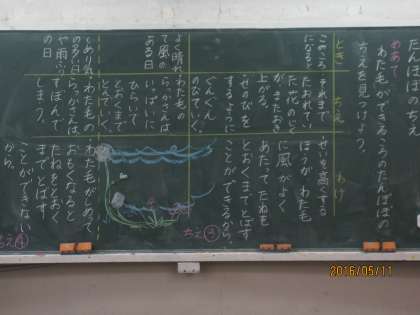 たんぽぽのち
めあて
わた毛ができるころのたんぽぽの
ちえを見つけよう。
とき
ちえ
わけ
このころ
になると
それまで
たおれてい
た花のじく
が、またおき
上がる。
せのびを
するように
ぐんぐん
のびていく。
せいを高くする
ほうが、わた毛
に風がよく
あたって、たねを
とおくまでとばす
ことができるから。
ちえ③
よく晴れ
て風の
ある日
わた毛の
らっかさんは
いっぱいに
ひらいて
とおくまで
とんでいく。
しめり気
の多い日
や雨ふり
の日
わた毛の
らっかさんは
すぼんで
しまう。
わた毛がしめって
おもくなると
たねをとおく
までとばす
ことができない
から。
ちえ④
2016/05/11